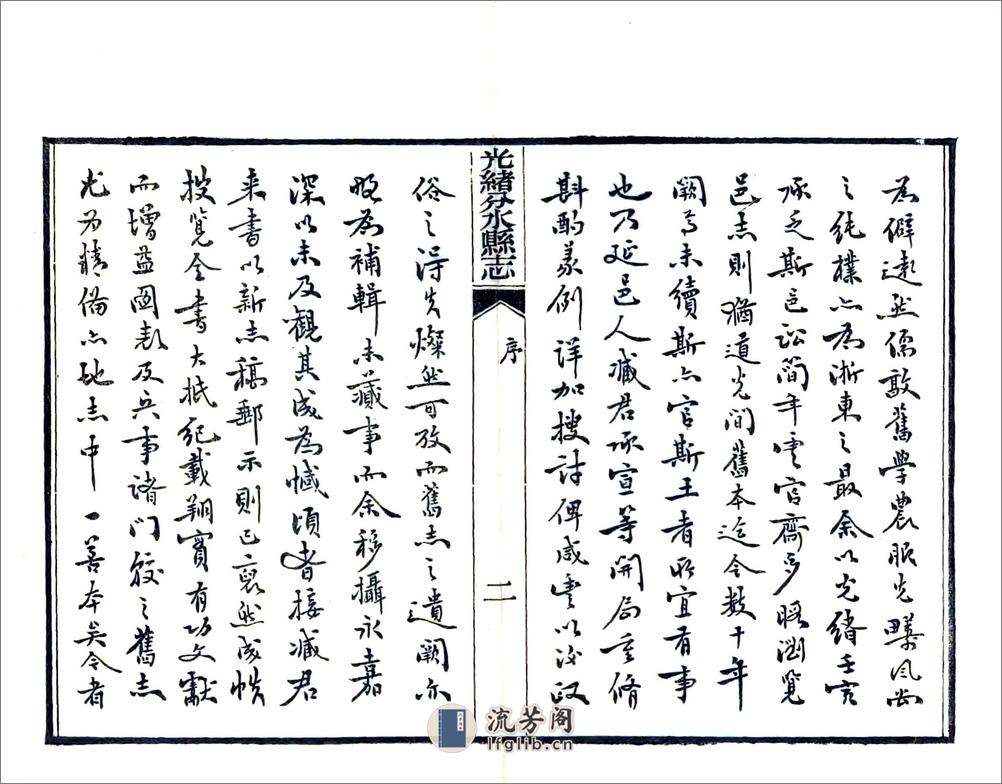 為僻遠然儒敦舊學農服先疇風尚
之純樸亦為浙東之最余以光緒壬寅
承乏斯邑訟簡年豐官齋多暇瀏覽
邑志則猶道光間舊本迄今數十年
闕焉未續斯亦官斯土者所宜有事
也乃延邑人臧君承宣等開局重脩
斟酌義例詳加搜討俾咸豐以後政
光緒分水縣志
序
二
俗之得失燦然可攷而舊志之遺闕亦
為補輯未蕆事而余移攝永嘉
深以未及觀其成為憾頃者接臧君
来書以新志稿郵示則已裒然成帙
披覽全書大抵紀載翔實有功文獻
而增益圖表及兵事諸門校之舊志
尤為精備亦地志中一善本矣今者
流芳阁
lfglib.cn